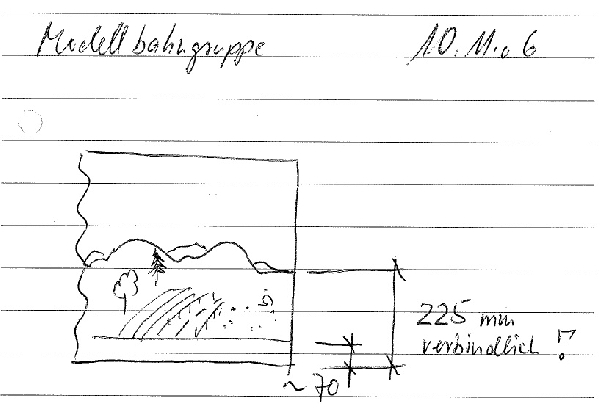 Modellbahngruppe 10.11.06
225 mm
verbindlich !
~70